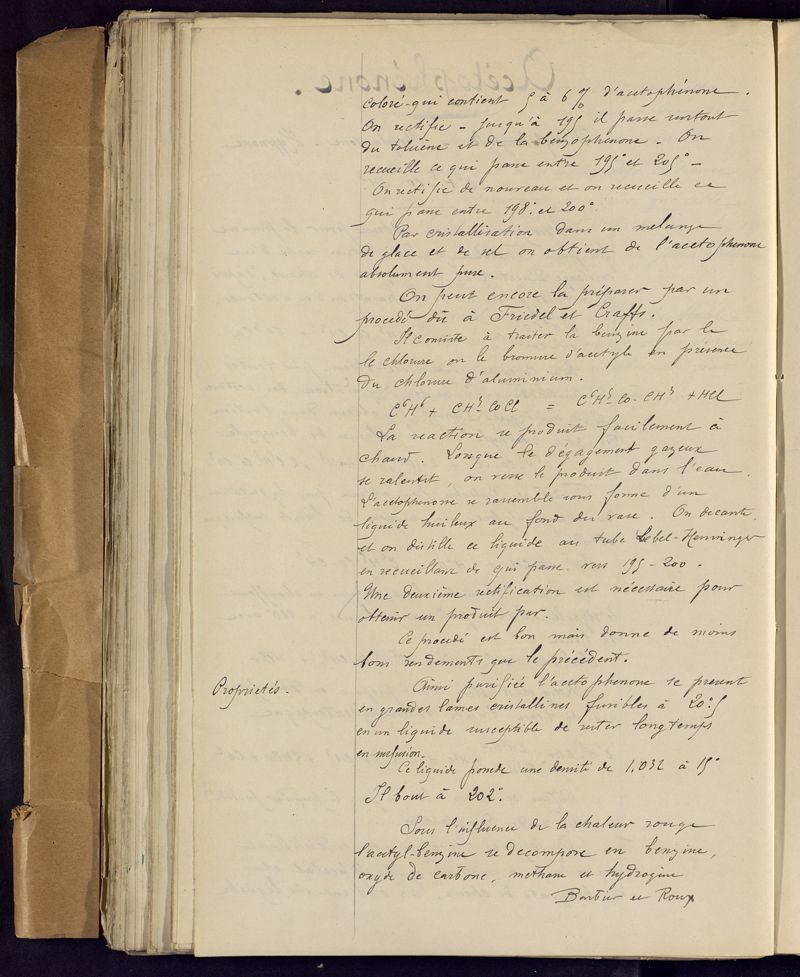 coloré qui contient 5 à 6 % d'acetophénone.
On rectifie - jusqu'à 195 il passe surtout
du toluène et de la benzophenone - On
recueille ce qui passe entre 195° et 205° -
On rectifie de nouveau et on recueille ce
qui passe entre 198° et 200°
Par cristallisation dans un melange
de glace et de sel on obtient de l'acetophenone
absolument pure.
On peut encore la préparer par un
procedé dû à Friedel et Crafts.
Il consiste à traiter la benzine par le
le chlorure ou le bromure d'acetyle en présence
du chlorure d'aluminium.
C⁶H⁶ + CH³-CoCl = C⁶H⁵-Co-CH³ + HCl
La reaction se produit facilement à
chaud. Lorsque le dégagement gazeux
se ralentit, on verse le produit dans l'eau.
L'acetophenone se rassemble sous forme d'un
liquide huileux au fond du vase. On decante
et on distille ce liquide au tube Lebel-Henninger
en recueillant ce qui passe vers 195-200.
Une deuxième rectification est nécessaire pour
obtenir un produit pur.
Ce procedé est bon mais donne de moins
bons rendements que le précédent.
Propriétés.
Ainsi purifiée l'acetophenone se present
en grandes lames cristallines fusibles à 20°,5
en un liquide susceptible de rester longtemps
en surfusion.
Ce liquide possede une densité de 1,032 à 15°
Il bout à 202°.
Sous l'influence de la chaleur rouge
l'acetyl-benzine se decompose en benzine,
oxyde de carbone, methane et hydrogène
Barbier et Roux